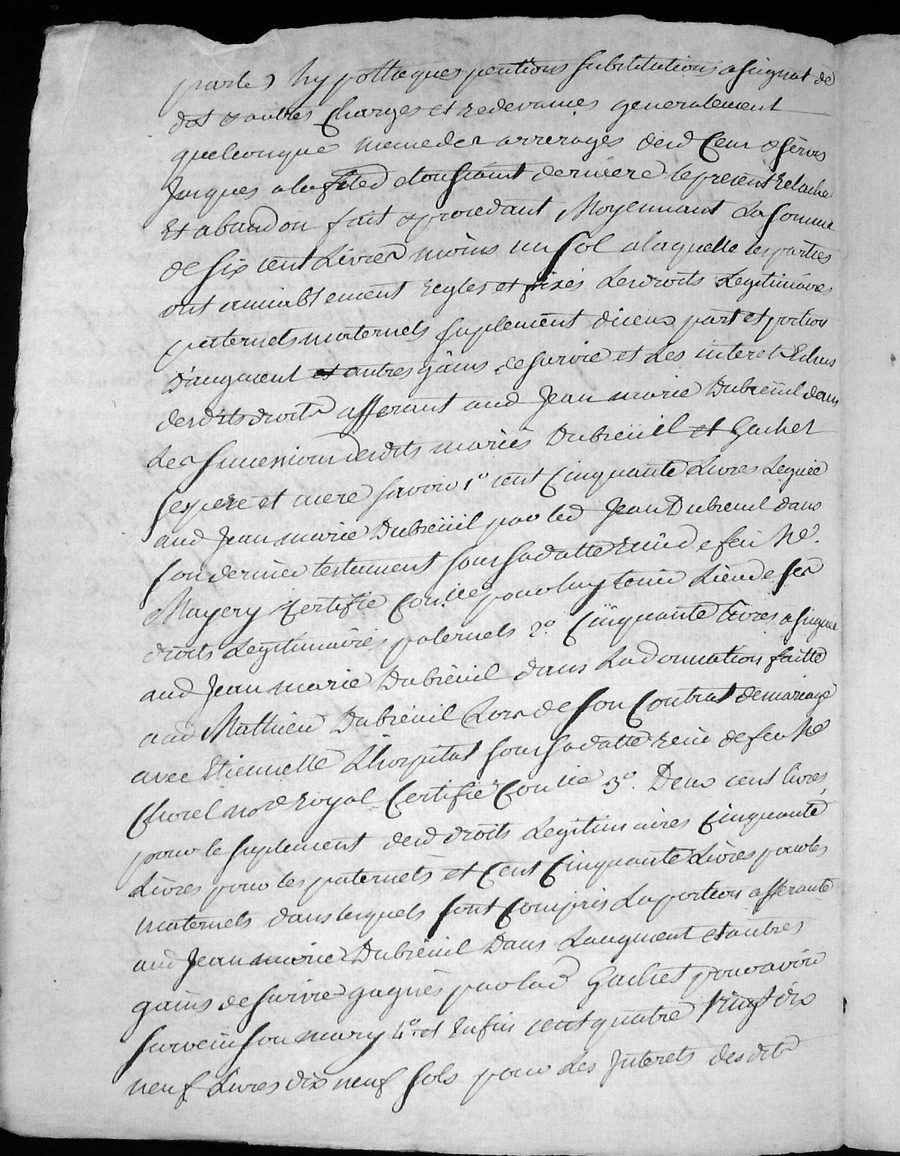 partes hypottaques pentions substitutions asignat de
dot & autres Charges et redevances generalement
quelconque meme des arrerages desd Cens & servis
Jusques a la fête de toussaint derniere le present relache
Et abandon fait & procedant Moyennant La somme
de six cent Livres moins un sol a laquelle les parties
ont amiablement regles et fixés Les droits Legitimaires
paternels maternels suplement diceux part et portion
D'augment et autres gains de survie et Les interet Echus
desdits droits afferant aud Jean marie Dubreüil dans
Les successions desdits mariés Dubreüil et Gachet
ses pere et mere savoir 1o cent Cinquante Livres Leguée
aud Jean marie Dubreüil par led Jean Dubreuil dans
son dernier testament sous sa datte reçû de feu Me
Mayery Certifié pour luy tenir Lieu de ses
droits Legitimaires paternels 2o Cinquante Livres asigné
aud Jean marie Dubreüil dans La donnation faitte
aud Mathieu Dubreüil Lors de son Contrat de mariage
avec Etiennette Lhorpital sous sa datte reçû de feu Me
Chorel nore royal Certifié 3o Deux cent livres
pour le suplement desd droits Legitimaires Cinquante
Livres pour les paternels et Cent Cinquante Livres pour les
maternels dans lesquels sont Compris La portion afferante
aud Jean marie Dubreüil Dans Laugment et autres
gains de survie gagnés par lad Gachet pour avoir
survecu son mary 4o et Enfin cent quatre Vingt dix
neuf Livres dix neuf sols pour Les Jnterets desdits